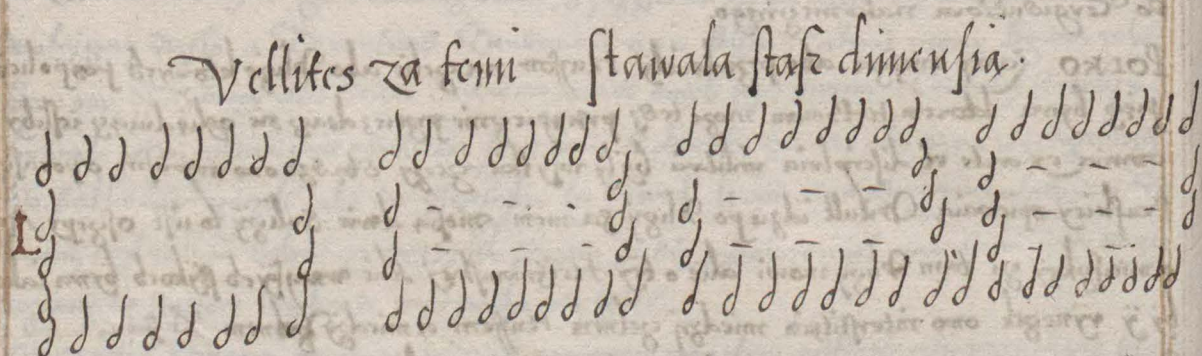 Vellites za temi ſtawala ſtaſz dimenſia.
L